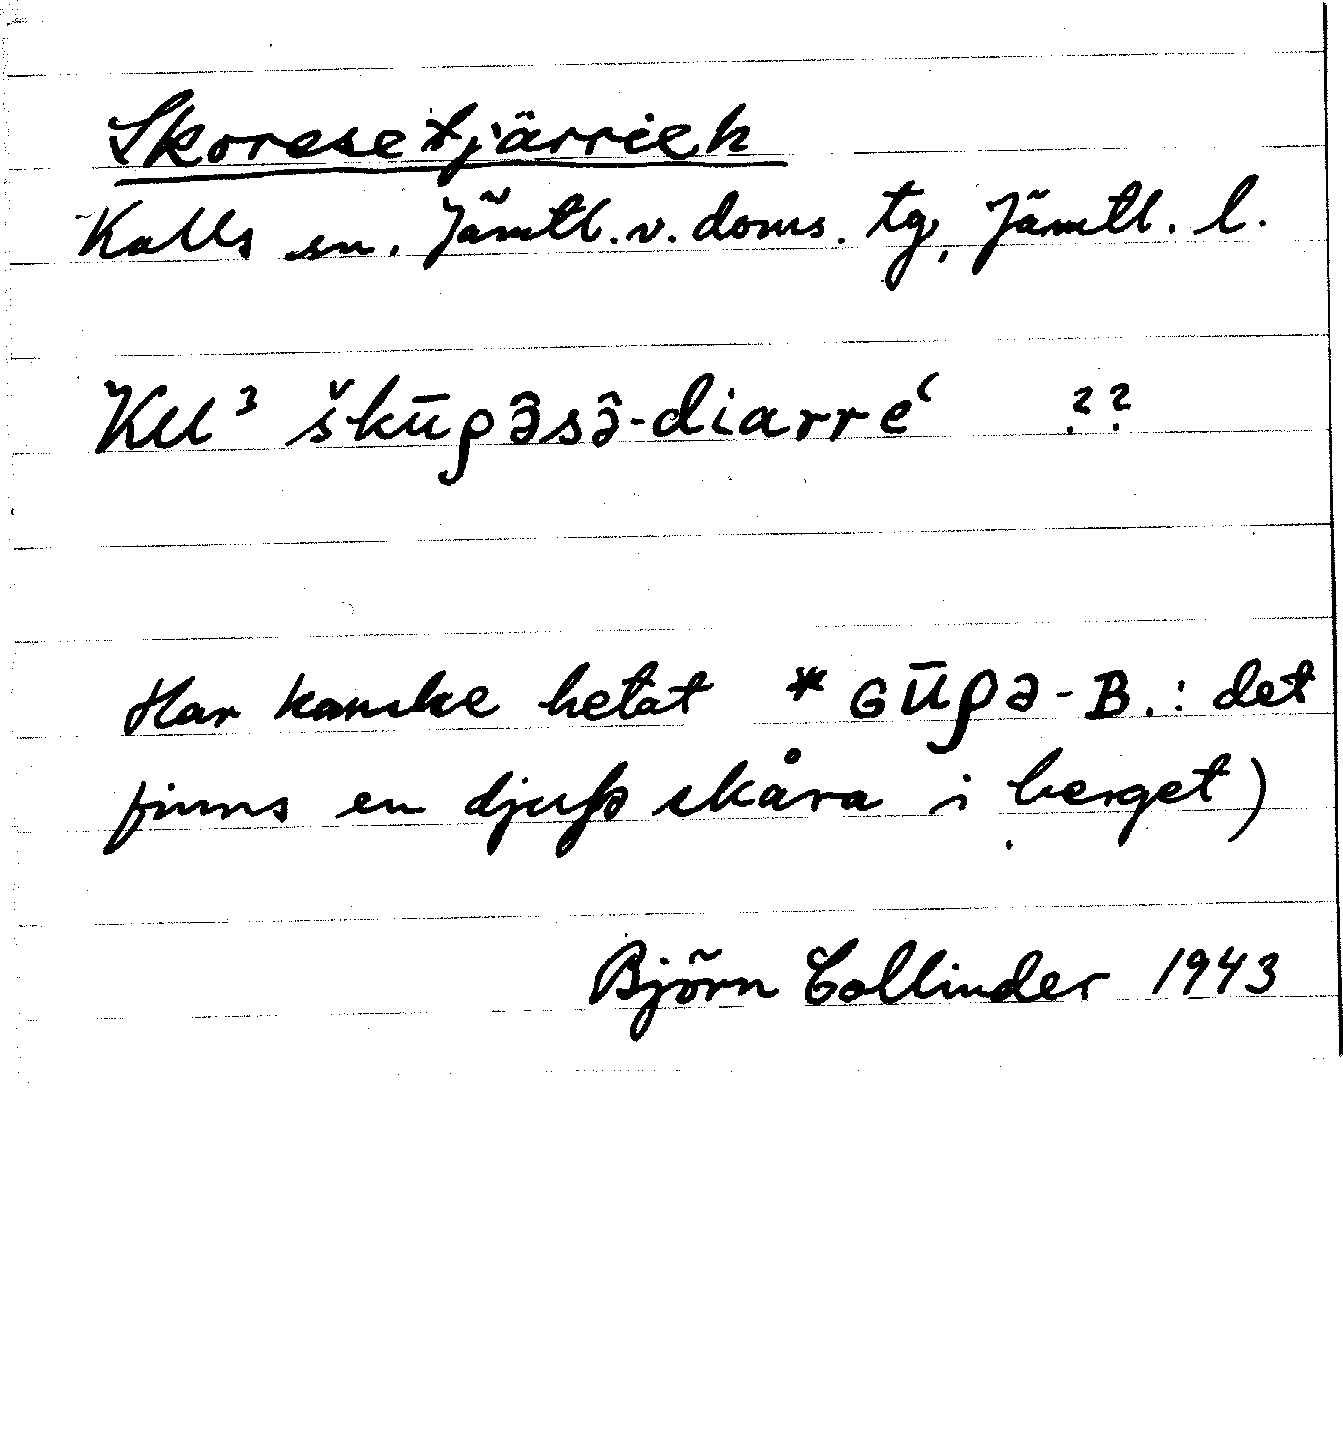 Skoresetjärrieh
Kalls sn. Jämtl. v. doms. tg, Jämtl. l.
Kll³ škūρə̑sə̑-diarre‘ ??
Har kanske hetat *ɢūρə-B.: det
finns en djup skåra i berget)
Björn Collinder 1943